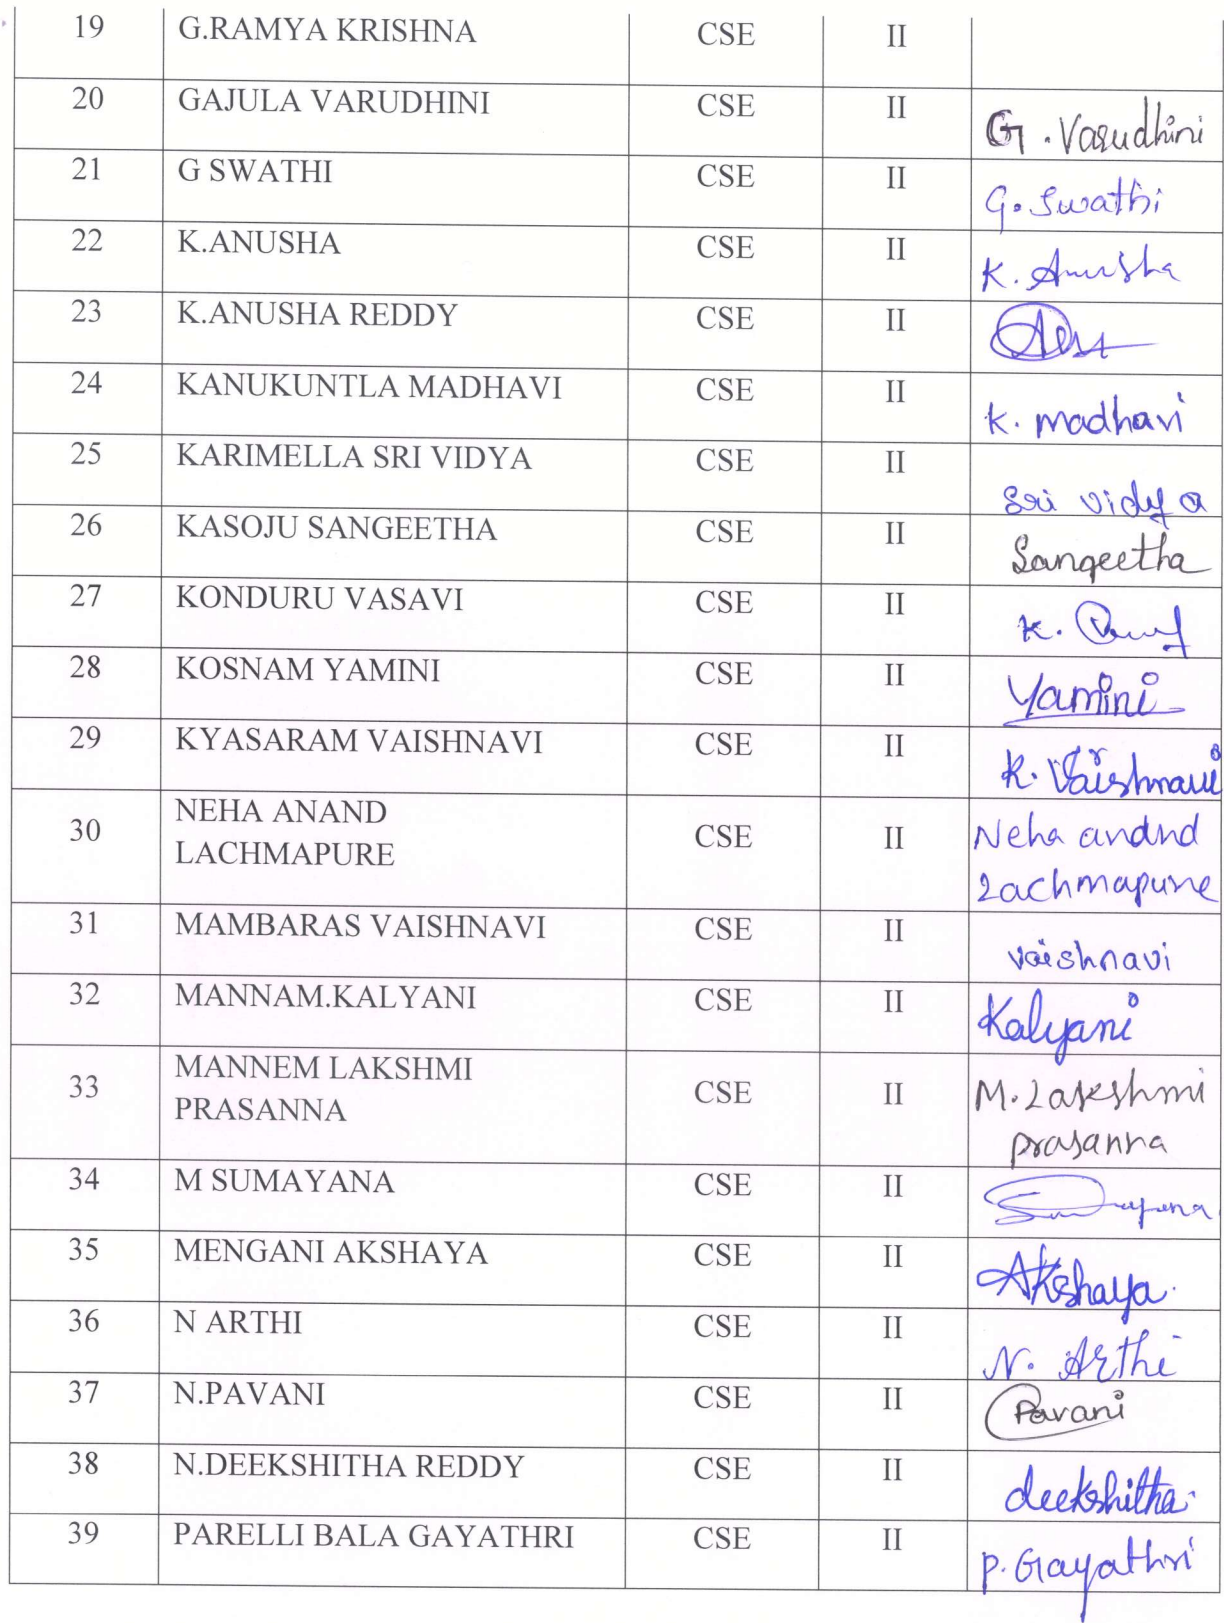 19 G.RAMYA KRISHNA CSE II
20 GAJULA VARUDHINI CSE II G. Varudhini
21 G SWATHI CSE II G. Swathi
22 K.ANUSHA CSE II K. Anusha
23 K.ANUSHA REDDY CSE II
24 KANUKUNTLA MADHAVI CSE II K. madhavi
25 KARIMELLA SRI VIDYA CSE II Sri vidya
26 KASOJU SANGEETHA CSE II Sangeetha
27 KONDURU VASAVI CSE II K.
28 KOSNAM YAMINI CSE II Yamini
29 KYASARAM VAISHNAVI CSE II K. Vaishnavi
30 NEHA ANAND CSE II Neha anand
LACHMAPURE Lachmapure
31 MAMBARAS VAISHNAVI CSE II vaishnavi
32 MANNAM.KALYANI CSE II Kalyani
33 MANNEM LAKSHMI CSE II M. Lakshmi
PRASANNA prasanna
34 M SUMAYANA CSE II
35 MENGANI AKSHAYA CSE II Akshaya.
36 N ARTHI CSE II N. Arthi
37 N.PAVANI CSE II Pavani
38 N.DEEKSHITHA REDDY CSE II deekshitha.
39 PARELLI BALA GAYATHRI CSE II P. Gayathri